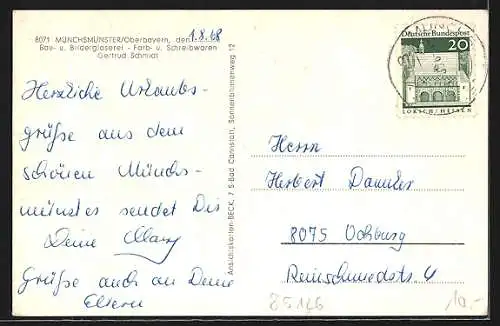 8071 MÜNCHSMÜNSTER/Oberbayern, den 1.8.68
Bau- u. Bilderglaserei - Farb- u. Schreibwaren
Gertrud Schmidt
Herzliche Urlaubs-
grüße aus dem
schönen Münchs-
münster sendet Dir
Deine Mary
Grüße auch an Deine
Eltern
Ansichtskarten-BECK, 7 S-Bad Cannstatt, Sonnenblumenweg 12
Deutsche Bundespost
20
LORSCH/HESSEN
Herrn
Herbert Daumler
8075 Vohburg
Reinschmiedstr. 4
85126
10,-